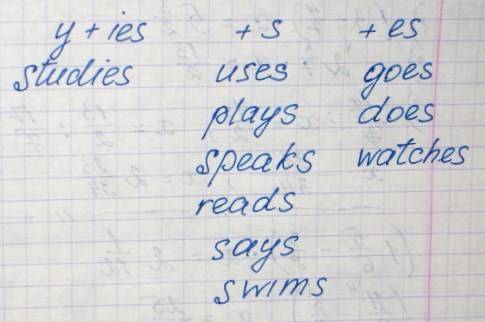 y + ies + s + es
studies uses goes
plays does
speaks watches
reads
says
swims